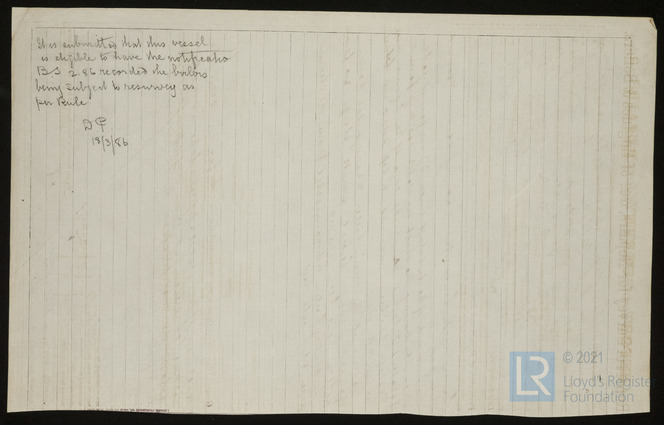 It is submitted that this vessel
is eligible to have the notificatio
BS 2.86 recorded the boilers
being subject to resurvey as
per Rule
18/3/86
LR
© 2021
Lloyd's Register
Foundation